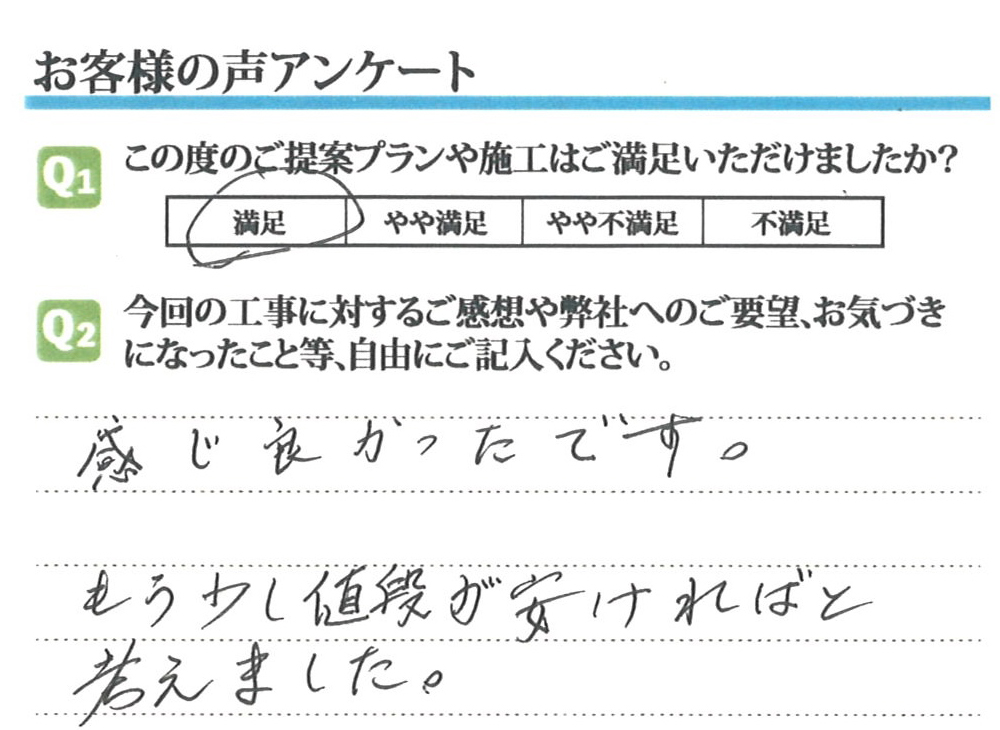 お客様の声アンケート
Q1 この度のご提案プランや施工はご満足いただけましたか?
満足 やや満足 やや不満足 不満足
Q2 今回の工事に対するご感想や弊社へのご要望、お気づき
になったこと等、自由にご記入ください。
感じ良かったです。
もう少し値段が安ければと
考えました。